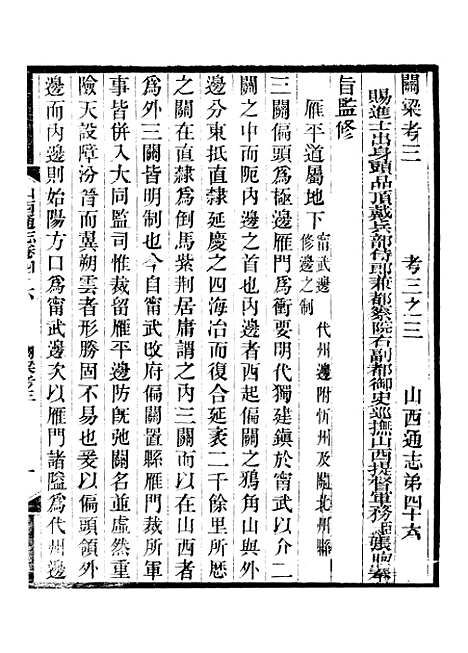 關梁考三　考三之三　山西通志第四十六
賜進士出身頭品頂戴兵部侍郎兼都察院右副都御史巡撫山西提督軍務臣張煦奉
旨監修
雁平道屬地下 甯武邊 代州邊附忻州及關北州縣
修邊之制
三關偏頭爲極邊雁門爲衝要明代獨建鎭於甯武以介二
關之中而阨內邊之首內邊者西起偏關之鴉角山與外
邊分東抵直隷延慶之四海冶而復合延袤二千餘里所歷
之關在直隷爲倒馬紫荆居庸謂之內三關而以在山西者
爲外三關皆明制也今自甯武改府偏關置縣雁門裁所軍
事皆併入大同監司惟裁留雁平邊防旣弛關名並虛然重
險天設障汾晉而冀朔雲者形勝固不易也爰以偏頭領外
邊而內邊則始陽方口爲甯武邊次以雁門諸隘爲代州邊
山西通志卷四十六　關梁考三　一